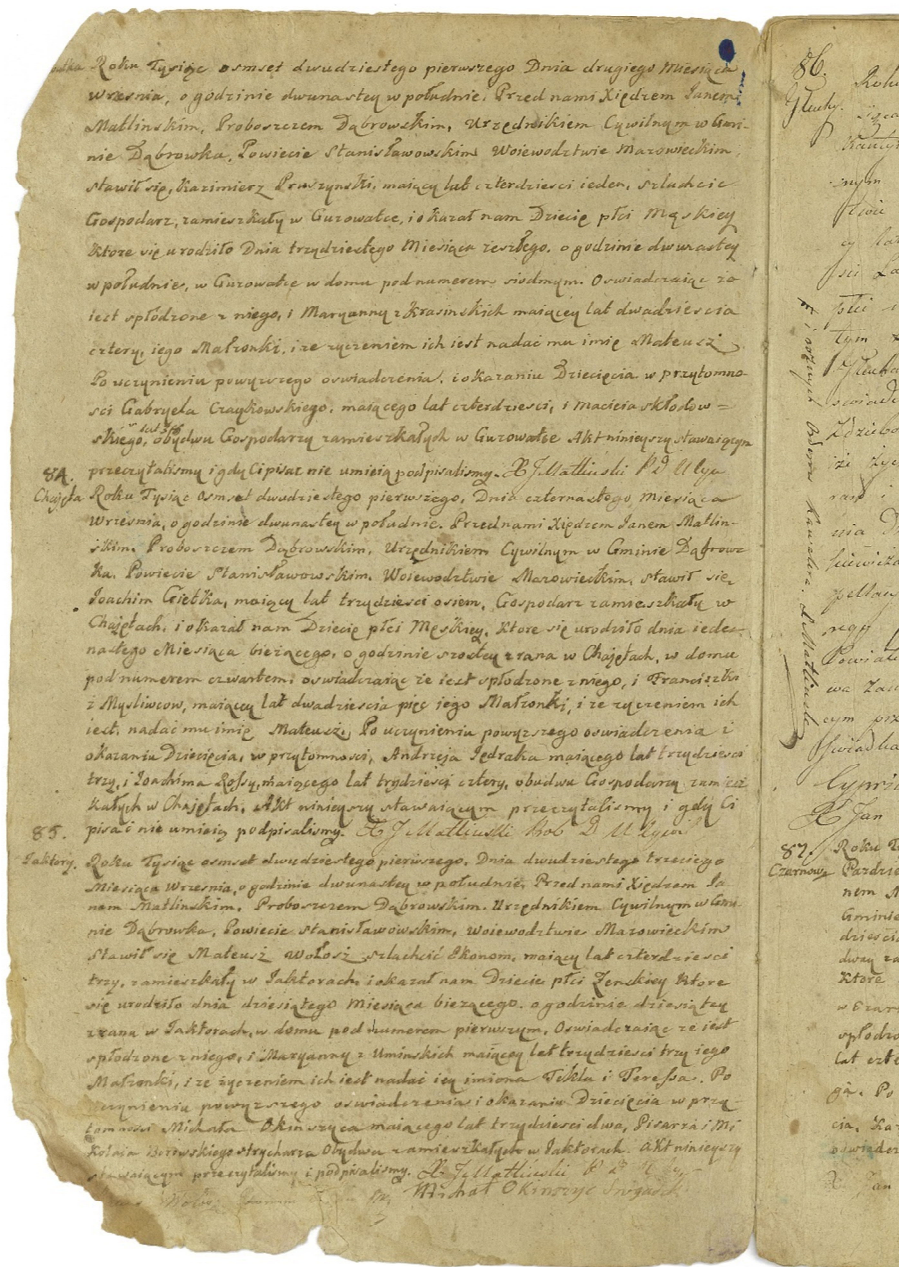 Roku Tysiąc osmset dwudziestego pierwszego Dnia drugiego Miesiąca
Września, o godzinie dwunastey w południe. Przed nami Xiędzem Janem
Matlinskim, Proboszczem Dąbrowskim, Urzędnikiem Cywilnym w Gmi-
nie Dąbrowka, Powiecie Stanisławowskim Woiewodztwie Mazowieckim,
stawił się, Kazimierz Pruszynski, maiący lat czterdziesci ieden, szlachcic
Gospodarz, zamieszkały w Guzowatce, i okazał nam Dziecię płci Męskiey
Ktore się urodziło Dnia trzydziestego Miesiąca zeszłego, o godzinie dwunastey
w południe, w Guzowatce w domu pod numerem siodmym. Oswiadczaiąc ze
iest spłodzone z niego, i Maryanny z Krasinskich maiącey lat dwadziescia
cztery, iego Małzonki, i ze zyczeniem ich iest nadać mu imię Mateusz
Po uczynieniu powyzszego oswiadczenia, i okazaniu Dziecięcia w przytomno-
sci Gabryela Czaykowskiego, maiącego lat czterdziesci, i Macieia Skłodow=
skiego, obydwu Gospodarzy zamieszkałych w Guzowatce Akt ninieyszy stawaiącym
przeczytalismy i gdy Ci pisac nie umieią podpisalismy. X J Matlinski
84.
Chajęta
Roku Tysiąc Osmset dwudziestego pierwszego, Dnia czternastego, Miesiąca
Wrzesnia, o godzinie dwunastey w południe. Przed nami Xiędzem Janem Matlin-
skim. Proboszczem Dąbrowskim, Urzędnikiem Cywilnym w Gminie Dąbrow-
ka. Powiecie Stanisławowskim. Woiewodztwie Mazowieckim, stawił się
Joachim Giętka, maiący lat trzydziesci osiem, Gospodarz zamieszkały w
Chajętach, i okazał nam Dziecię płci Męskiey, Ktore się urodziło dnia iede-
nastego Miesiąca bieżącego, o godzinie szostey z rana w Chajętach, w domu
pod numerem czwartem; oswiadczaiąc że iest spłodzone z niego, i Franciszki
z Mysliwcow, maiącey lat dwadziescia pięc jego Małzonki, i ze zyczeniem ich
iest, nadać mu imię Mateusz. Po uczynieniu powyzszego oswiadczenia i
okazaniu Dziecięcia, w przytomności, Andrzeja Jędraka maiącego lat trzydziesci
trzy, i Joachima Rosy, maiącego lat trydziesci cztery, obudwu Gospodarzy zamiesz
kałych w Chajętach, Akt ninieyszy stawaiącym przeczytalismy i gdy Ci
pisac nie umieią podpisalismy. X J Matlinski
85.
Jaktory.
Roku Tysiąc osmset dwudziestego pierwszego. Dnia dwudziestego trzeciego
Miesiąca Wrzesnia, o godzinie dwunastey w południe. Przed nami Xiędzem Ja
nem Matlinskim, Proboszczem Dąbrowskim. Urzędnikiem Cywilnym w Gmi-
nie Dąbrowka, Powiecie Stanisławowskim, Woiewodztwie Mazowieckim
Stawił się Mateusz Wołosz szlachcic Ekonom, maiący lat czterdziesci
trzy, zamieszkały w Jaktorach i okazał nam Dziecie płci Zenskiey Ktore
się urodziło dnia dziesiątego Miesiąca bieżącego. o godzinie dziesiątey
z rana w Jaktorach, w domu pod numerem pierwszym, Oswiadczaiąc ze iest
spłodzone z niego, i Maryanny z Uminskich maiącey lat trzydziesci trzy iego
Małzonki, i ze życzeniem ich iest nadać iey imiona Tekla i Teressa. Po
uczynieniu powyzszego oswiadczenia i okazaniu Dziecięcia w przy-
tomnosci Michała Okinszyca maiącego lat trzydziesci dwa, Pisarza i Mi
kołaia Borowskiego strycharza Obydwu zamieszkałych w Jaktorach. Akt ninieyszy
stawaiącym przeczytalismy i podpisalismy. X J Matlinski
Michał Okinszyc
86.
Głuchy.
87.
Czarnow
Roku
Pazdzie
nem M
Gminie
dziesci
Ktore
spłodzo
lat czte
Po
cia,
oswiadcz
X Jan